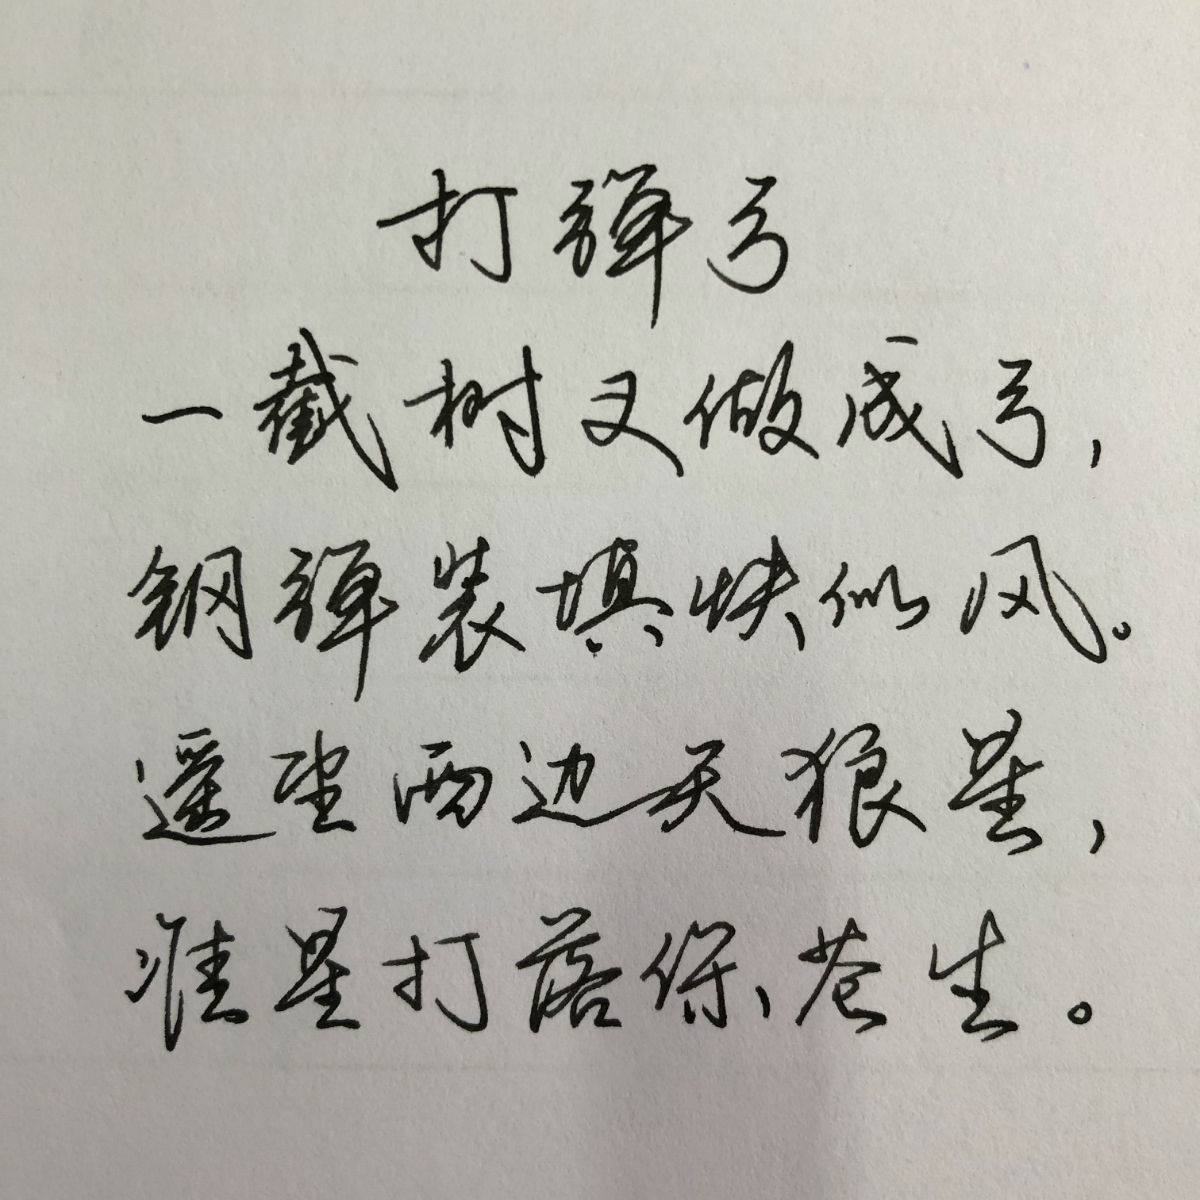 打弹弓
一截树叉做成弓,
钢弹装填快似风。
遥望西边天狼星,
准星打落保苍生。